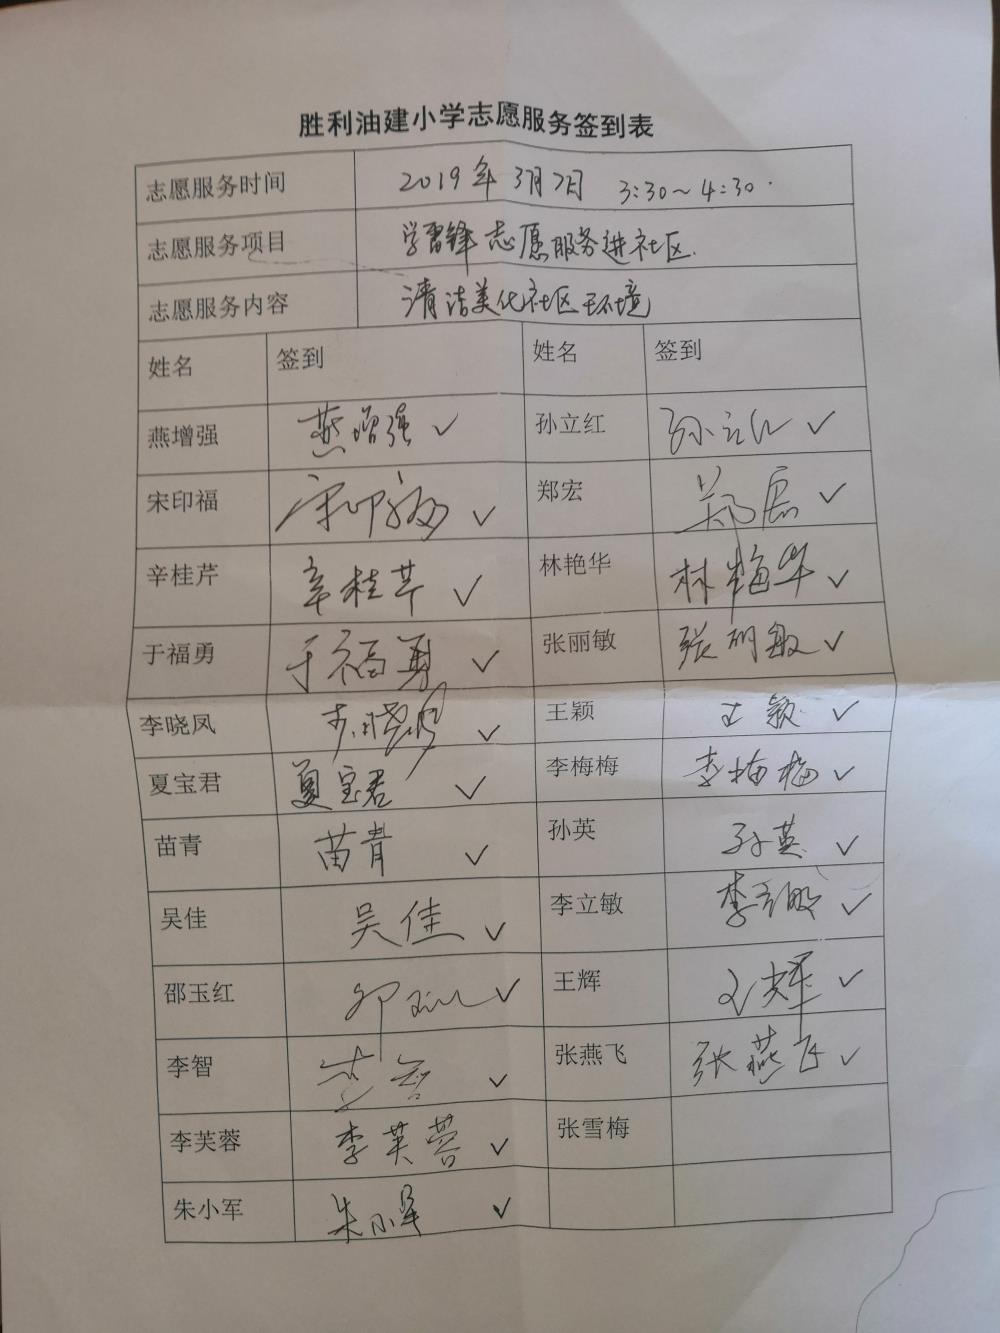 胜利油建小学志愿服务签到表
志愿服务时间 2019年3月7日 3:30~4:30.
志愿服务项目 学雷锋志愿服务进社区.
志愿服务内容 清洁美化社区环境
姓名 签到 姓名 签到
燕增强 燕增强 ✓ 孙立红 孙立红 ✓
宋印福 宋印福 ✓ 郑宏 郑宏 ✓
辛桂芹 辛桂芹 ✓ 林艳华 林梅华 ✓
于福勇 于福勇 ✓ 张丽敏 张丽敏 ✓
李晓凤 李晓凤 ✓ 王颖 王颖 ✓
夏宝君 夏宝君 ✓ 李梅梅 李梅梅 ✓
苗青 苗青 ✓ 孙英 孙英 ✓
吴佳 吴佳 ✓ 李立敏 李立敏 ✓
邵玉红 邵玉红 ✓ 王辉 王辉 ✓
李智 李智 ✓ 张燕飞 张燕飞 ✓
李芙蓉 李芙蓉 ✓ 张雪梅
朱小军 朱小军 ✓